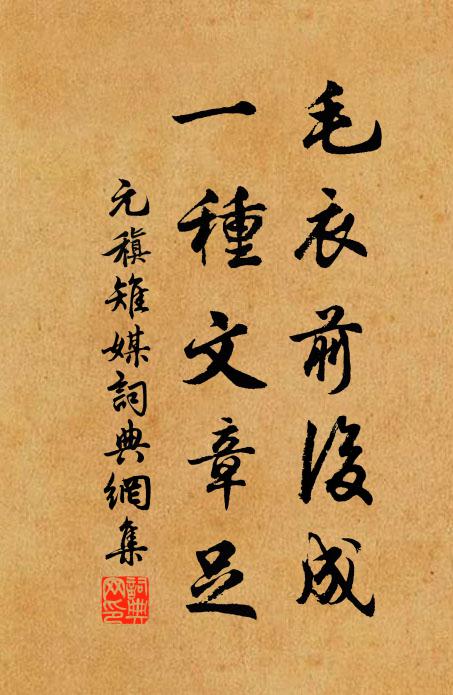 毛衣前後成
一種文章足
元稹雉媒詞典網集
詞典
网印